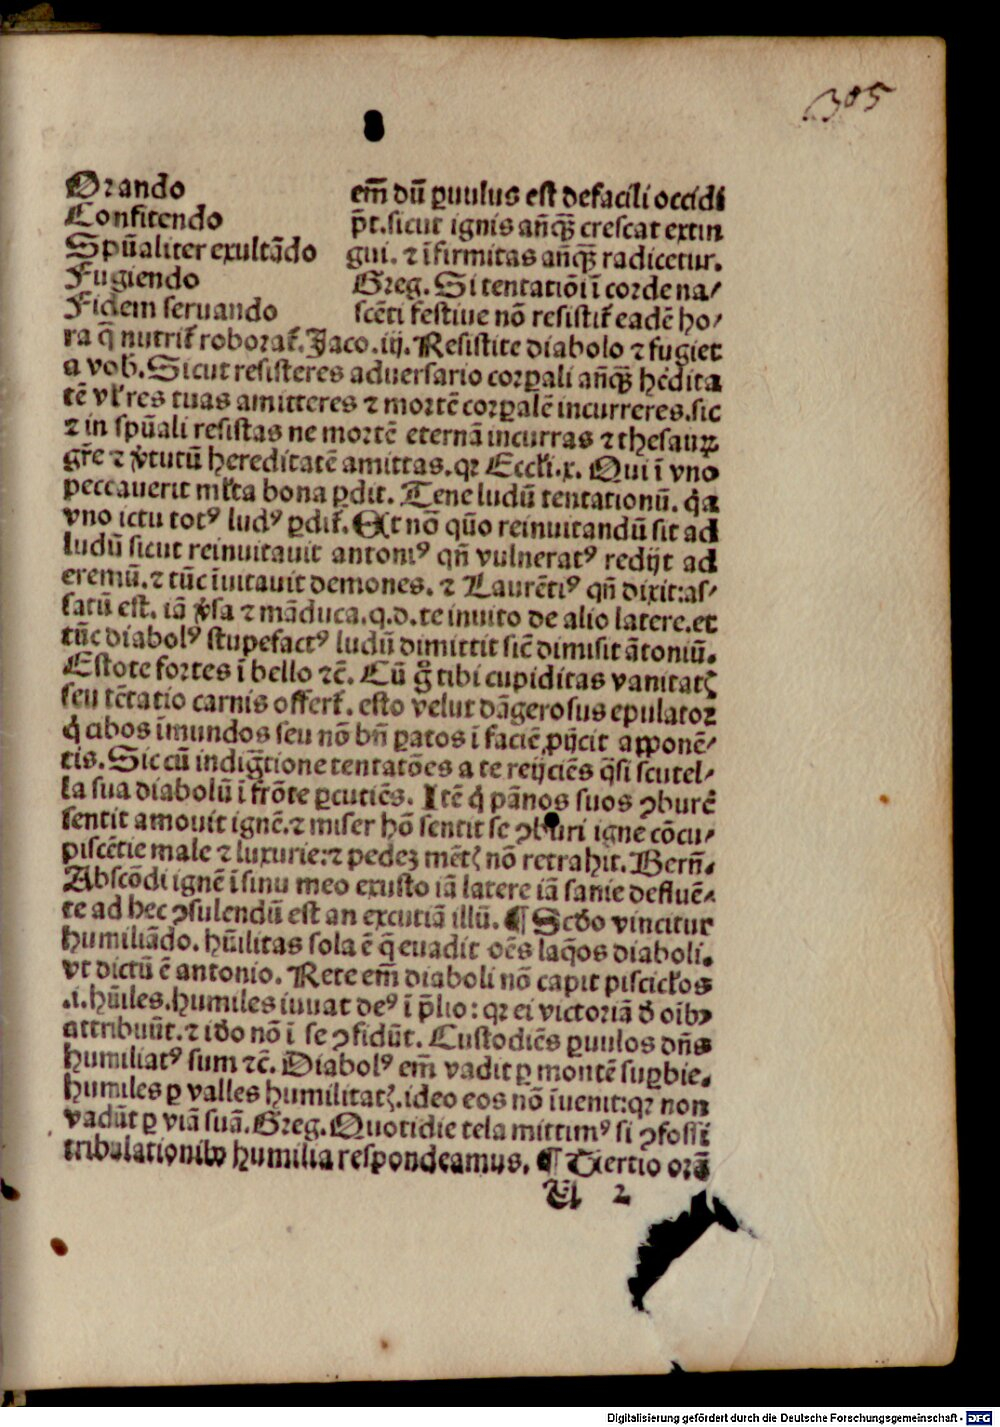 305
Orando
Confitendo
Spūaliter exultādo
Fugiendo
Fidem seruando
em̄ dū ꝑuulus est defacili occidi
p̄t. sicut ignis an̄qꝫ crescat extin
gui. ⁊ īfirmitas an̄qꝫ radicetur.
Greg. Si tentatiōi ī corde na/
scēti festiue nō resistiť eadē ho/
ra q̄ nutriť roborať. Jaco. iij. Resistite diabolo ⁊ fugiet
a vob̄. Sicut resisteres aduersario corꝑali an̄qꝫ hēdita
tē vl' res tuas amitteres ⁊ mortē corꝑalē incurreres. sic
⁊ in spūali resistas ne mortē eternā incurras ⁊ thesauꝝ
gr̄e ⁊ v̓tutū hereditatē amittas. qꝛ Eccl'i. x. Qui ī vno
peccauerit ml'ta bona ꝑdit. Tene ludū tentationū. q̓a
vno ictu totꝰ ludꝰ ꝑdiť. Et nō quō reinuitandū sit ad
ludū sicut reinuitauit antoniꝰ qn̄ vulneratꝰ redijt ad
eremū. ⁊ tūc īuitauit demones. ⁊ Laurētiꝰ qn̄ dixit: as/
satū est. iā v̓sa ⁊ māduca. q. d. te inuito de alio latere. et
tūc diabolꝰ stupefactꝰ ludū dimittit sic̄ dimisit ātoniū.
Estote fortes ī bello ⁊c̄. Cū g̊ tibi cupiditas vanitatꝭ
seu tētatio carnis offerť. esto velut dāgerosus epulator
q̓ cibos īmundos seu nō bn̄ ꝑatos ī faciē ꝓijcit apponē/
tis. Sic cū indiḡtione tentatōes a te reijciēs q̄si scutel/
la sua diabolū ī frōte ꝑcutiēs. Itē q̓ pānos suos ꝯburē
sentit amouit ignē. ⁊ miser hō sentit se ꝯburi igne cōcu/
piscētie male ⁊ luxurie: ⁊ pedeꝫ mētꝭ nō retrahit. Bern̄.
Abscōdi ignē ī sinu meo exusto iā latere iā sanie defluē/
te ad hec ꝯsulendū est an excutiā illū. ¶ Scd̄o vincitur
humiliādo. hūilitas sola ē q̄ euadit oēs laq̓os diaboli.
vt dictū ē antonio. Rete em̄ diaboli nō capit piscicl'os
.i. hūiles. humiles iuuat deꝰ ī p̄lio: qꝛ ei victoriā d̄ oībꝰ
attribuūt. ⁊ id̄o nō ī se ꝯfidūt. Custodiēs ꝑuulos dn̄s
humiliatꝰ sum ⁊c̄. Diabolꝰ em̄ vadit ꝑ montē suꝑbie.
humiles ꝑ valles humilitatꝭ. ideo eos nō īuenit: qꝛ non
vadūt ꝑ viā suā. Greg. Quotidie tela mittimꝰ si ꝯfossi
tribulationibꝰ humilia respondeamus. ¶ Tertio orā
A 2
Digitalisierung gefördert durch die Deutsche Forschungsgemeinschaft - DFG